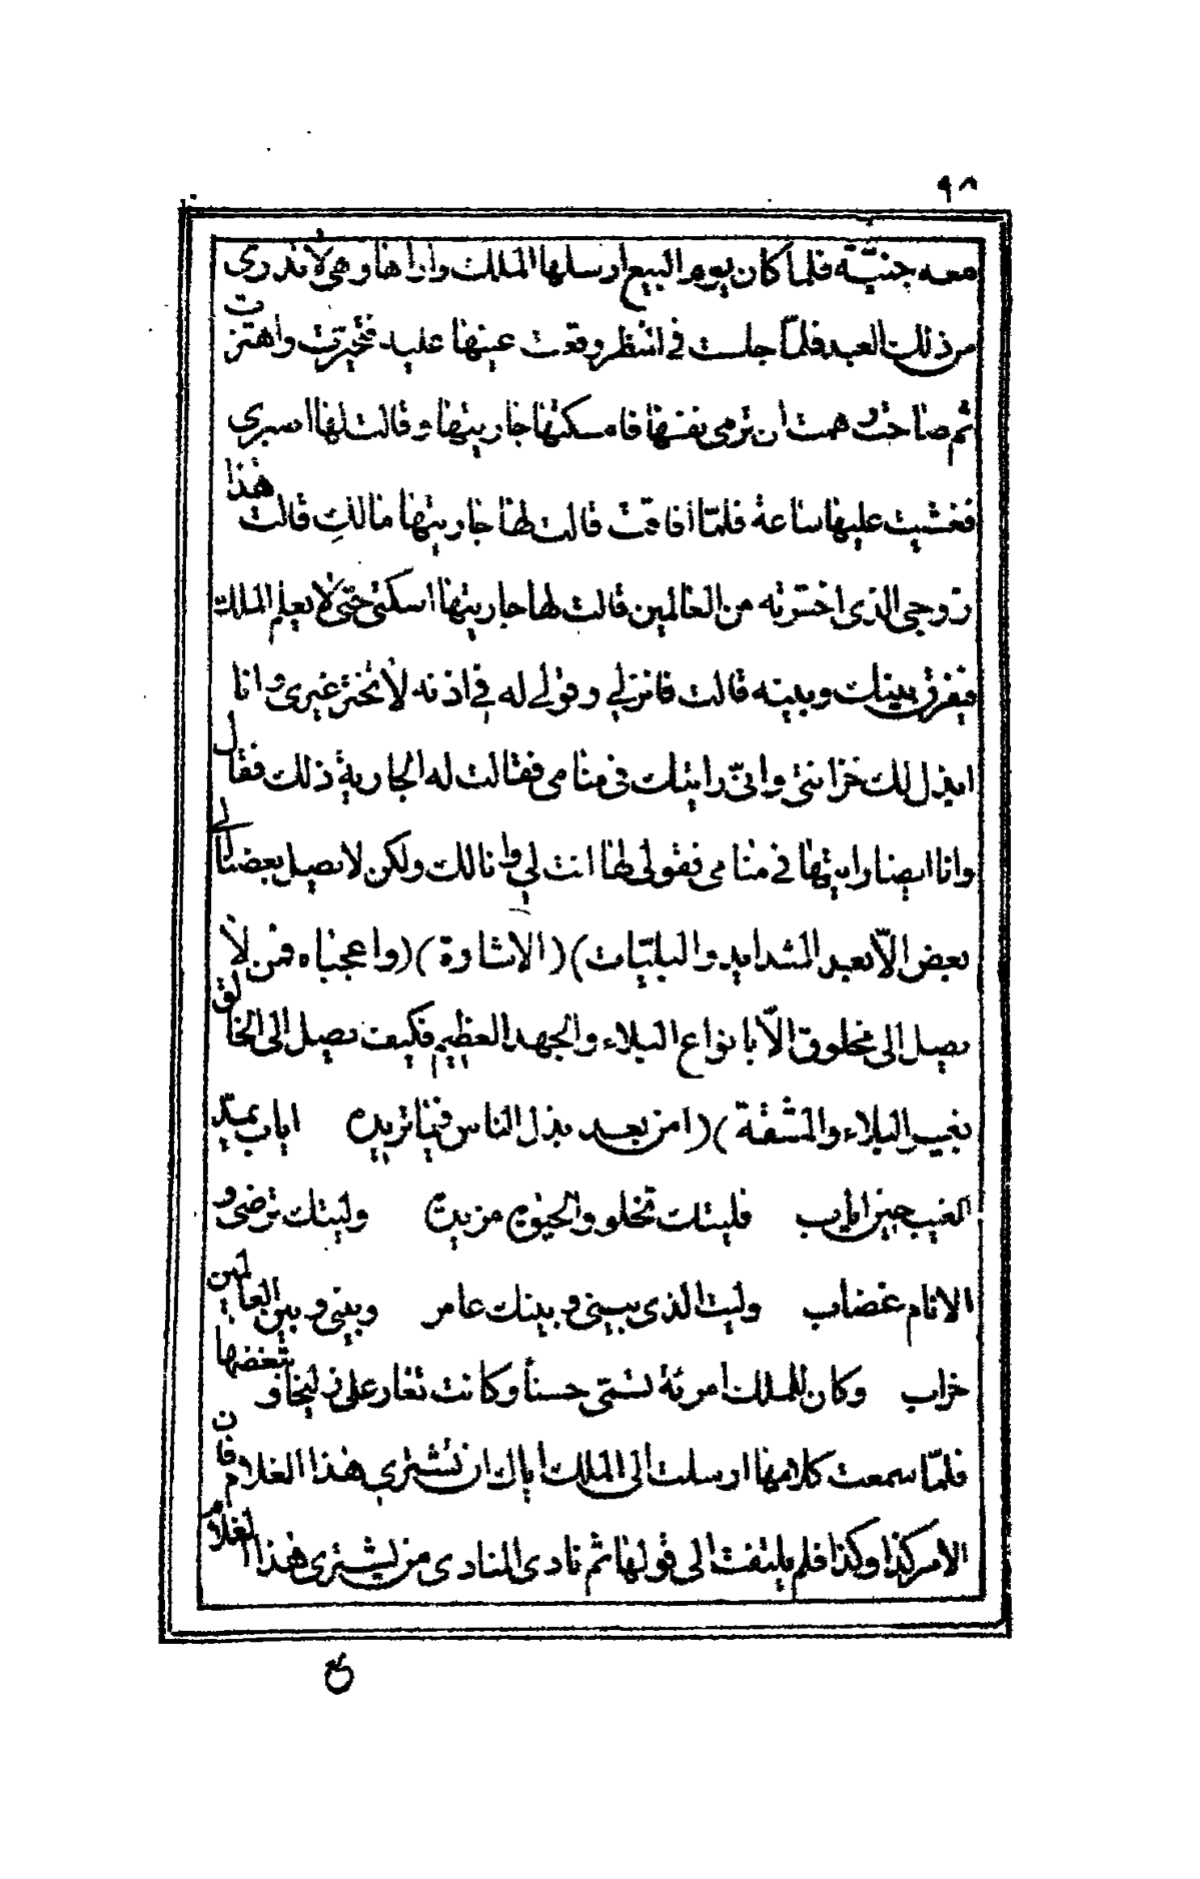 ٩٨
معه جنيّة فلما كان يوم البيع ارسلها الملك وارادها وهى لا تدرى
من ذلك العبد فلمّا جلست فى انتظر وقعت عينها عليه فتحيرت واهتزت
ثم صاحت وهمت ان ترمى نفسها فامسكتها جاريتها وقالت لها اصبرى
فغشيت عليها ساعة فلمّا افاقت قالت لها جاريتها مالك قالت هذا
زوجى الذى اخترته من العالمين قالت لها جاريتها اسكتى حتى لا يعلم الملك
فيفرق بينك وبينه قالت فانزلي وقولي له في اذنه لا تختر غيرى وانا
ابذل لك خزائنى وانّى رايتك فى منامى فقالت له الجارية ذلك فقال
وانا ايضا رايتها فى منامى فقولى لها انت لي وانا لك ولكن لا يصل بعضنا الى
بعض الاّ بعد الشدايد والبليّات)(الاشارة)(واعجباه فمن لا
يصل الى مخلوق الاّ بانواع البلاء والجهد العظيم فكيف يصل الى الخالق
بغير البلاء والمشقة)(امن بعد بذل الناس فيما تريده اياب بميد
الغيب حين اياب فليتك تحلو والحيوة مريرة وليتك ترضى و
الانام غضاب وليت الذى بينى وبينك عامر وبينى وبين العالمين
خراب وكان للملك امرئة تسمّى حسناً وكانت تغار على زليخا وتبغضها
فلمّا سمعت كلامها ارسلت الى الملك اياك ان تشترى هذا الغلام فان
الامر كذا وكذا فلم يلتفت الى قولها ثم نادى المنادى من يشترى هذا الغلام